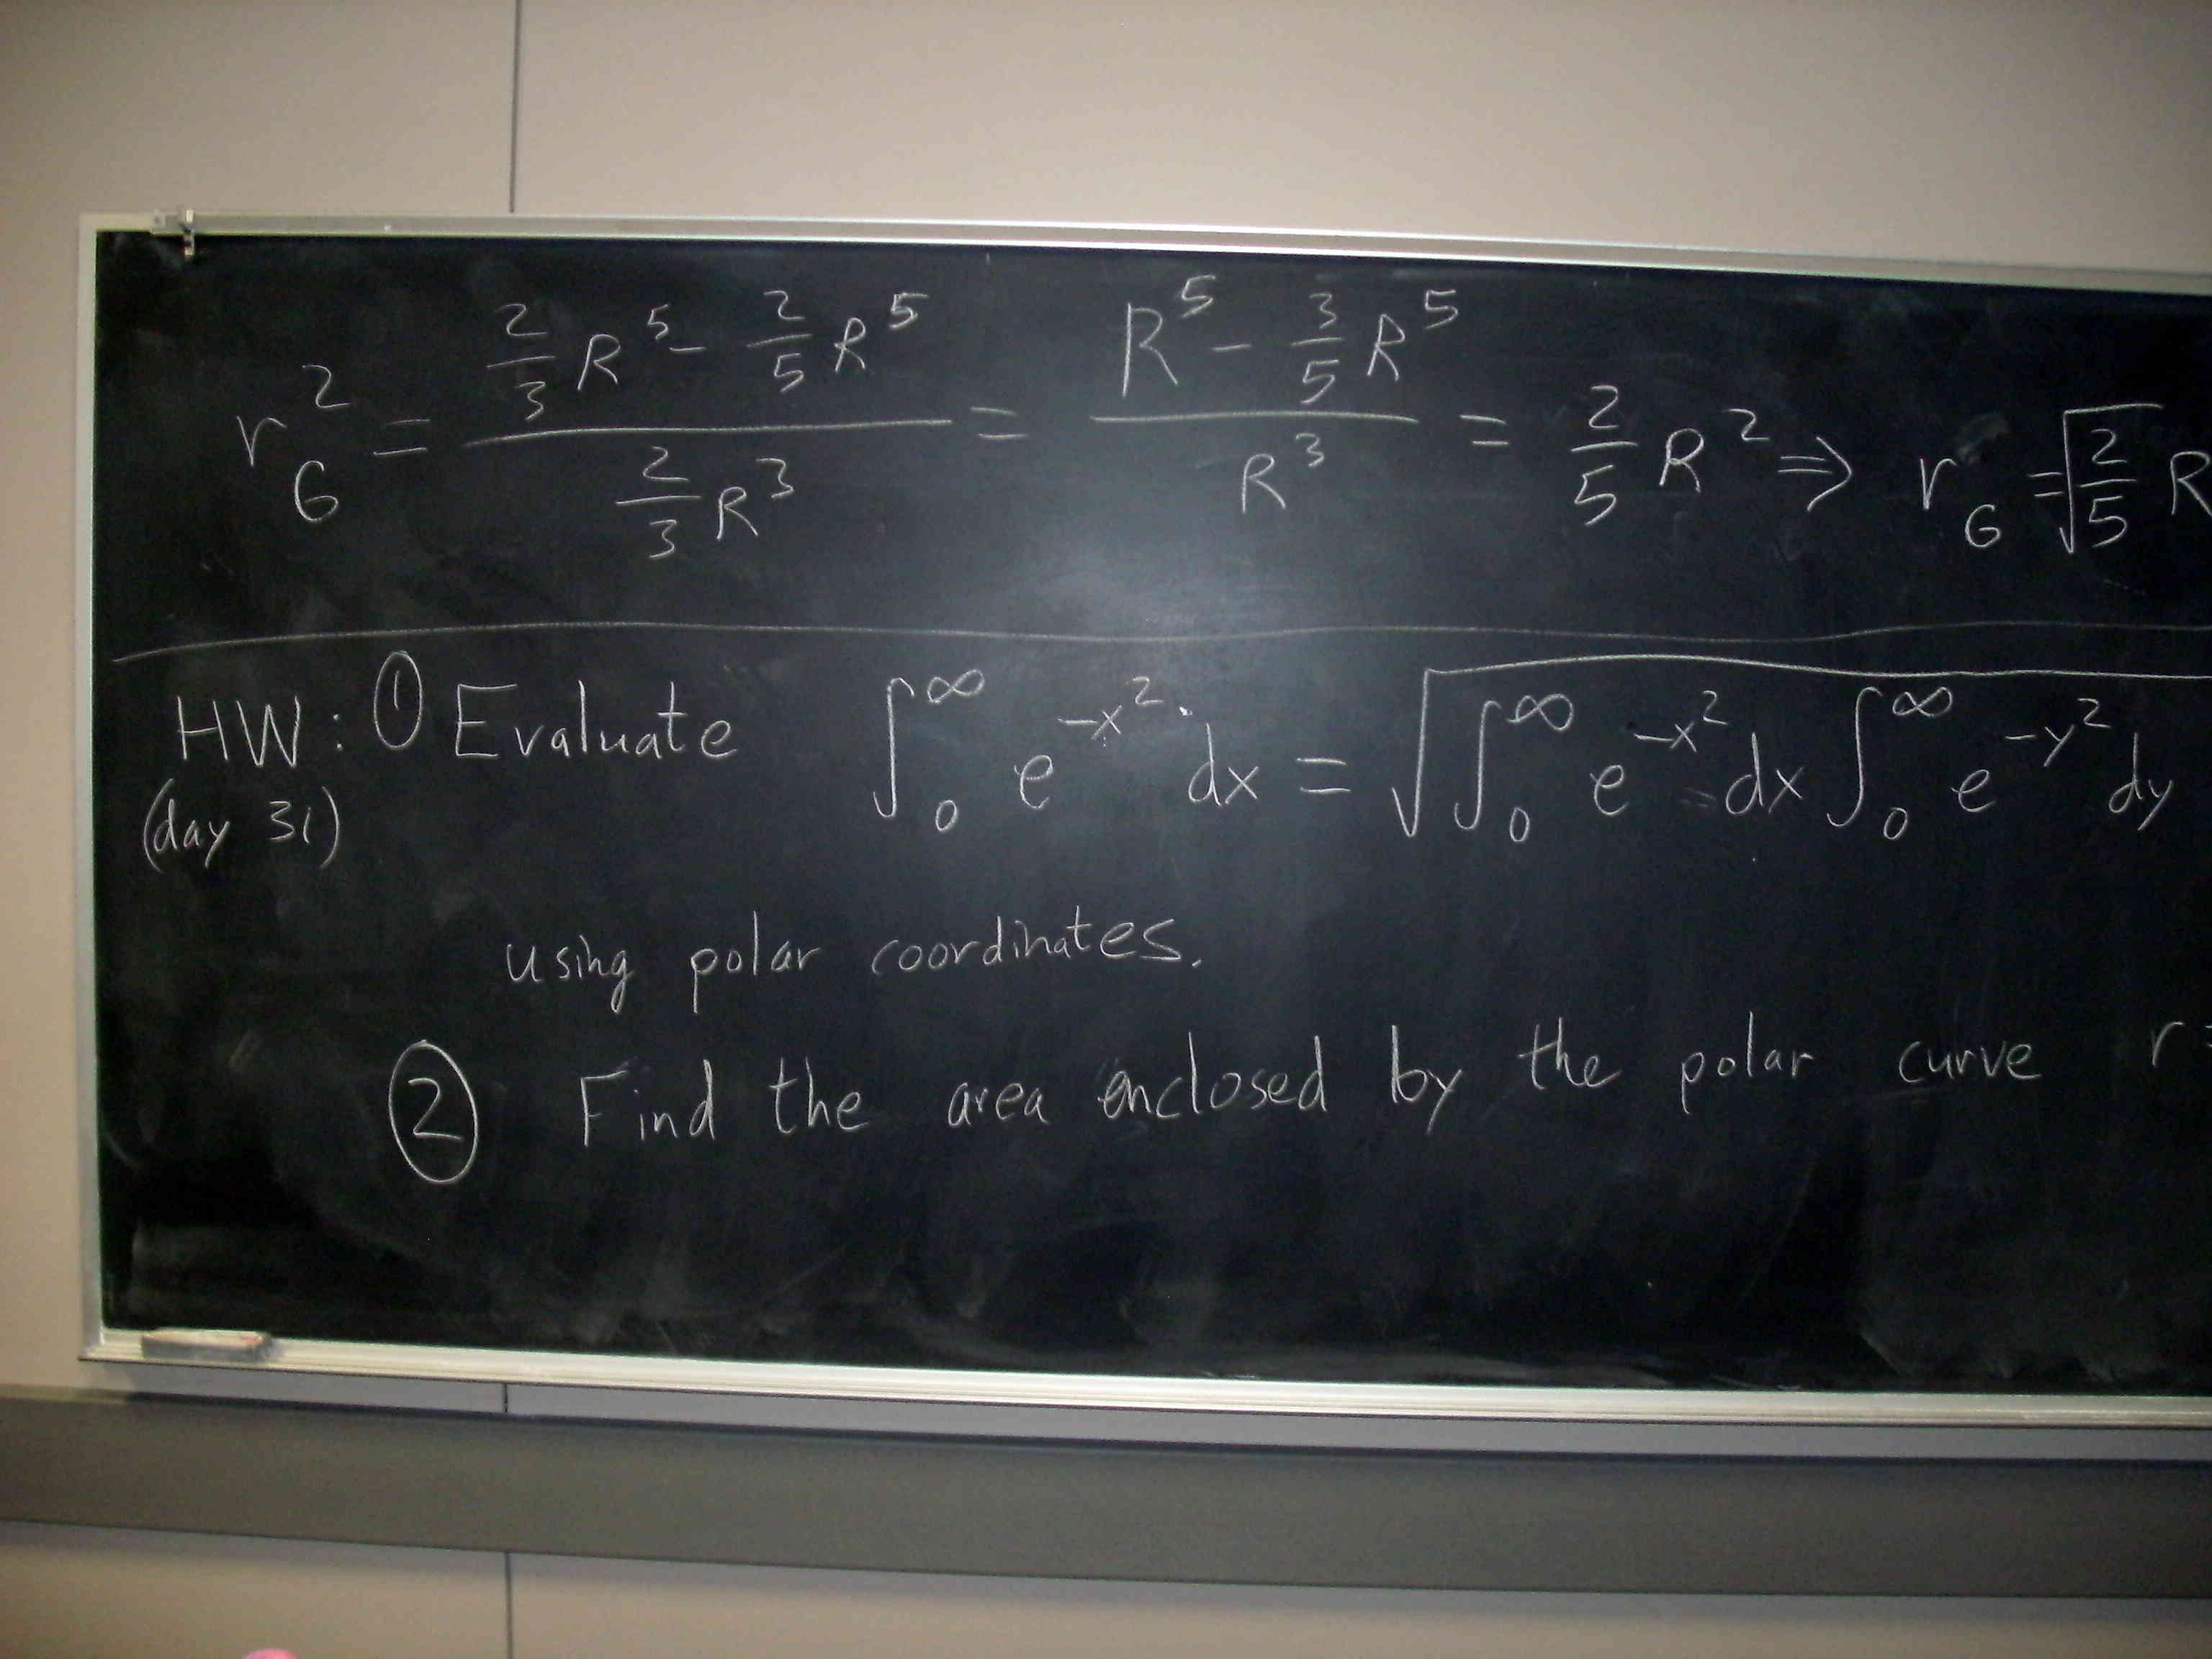 r_G^2 = (2/3 R^5 - 2/5 R^5) / (2/3 R^3) = (R^5 - 3/5 R^5) / R^3 = 2/5 R^2 ⇒ r_G = √(2/5) R
HW: ① Evaluate ∫_0^∞ e^{-x^2} dx = √(∫_0^∞ e^{-x^2} dx ∫_0^∞ e^{-y^2} dy
(day 31)
using polar coordinates.
② Find the area enclosed by the polar curve r =